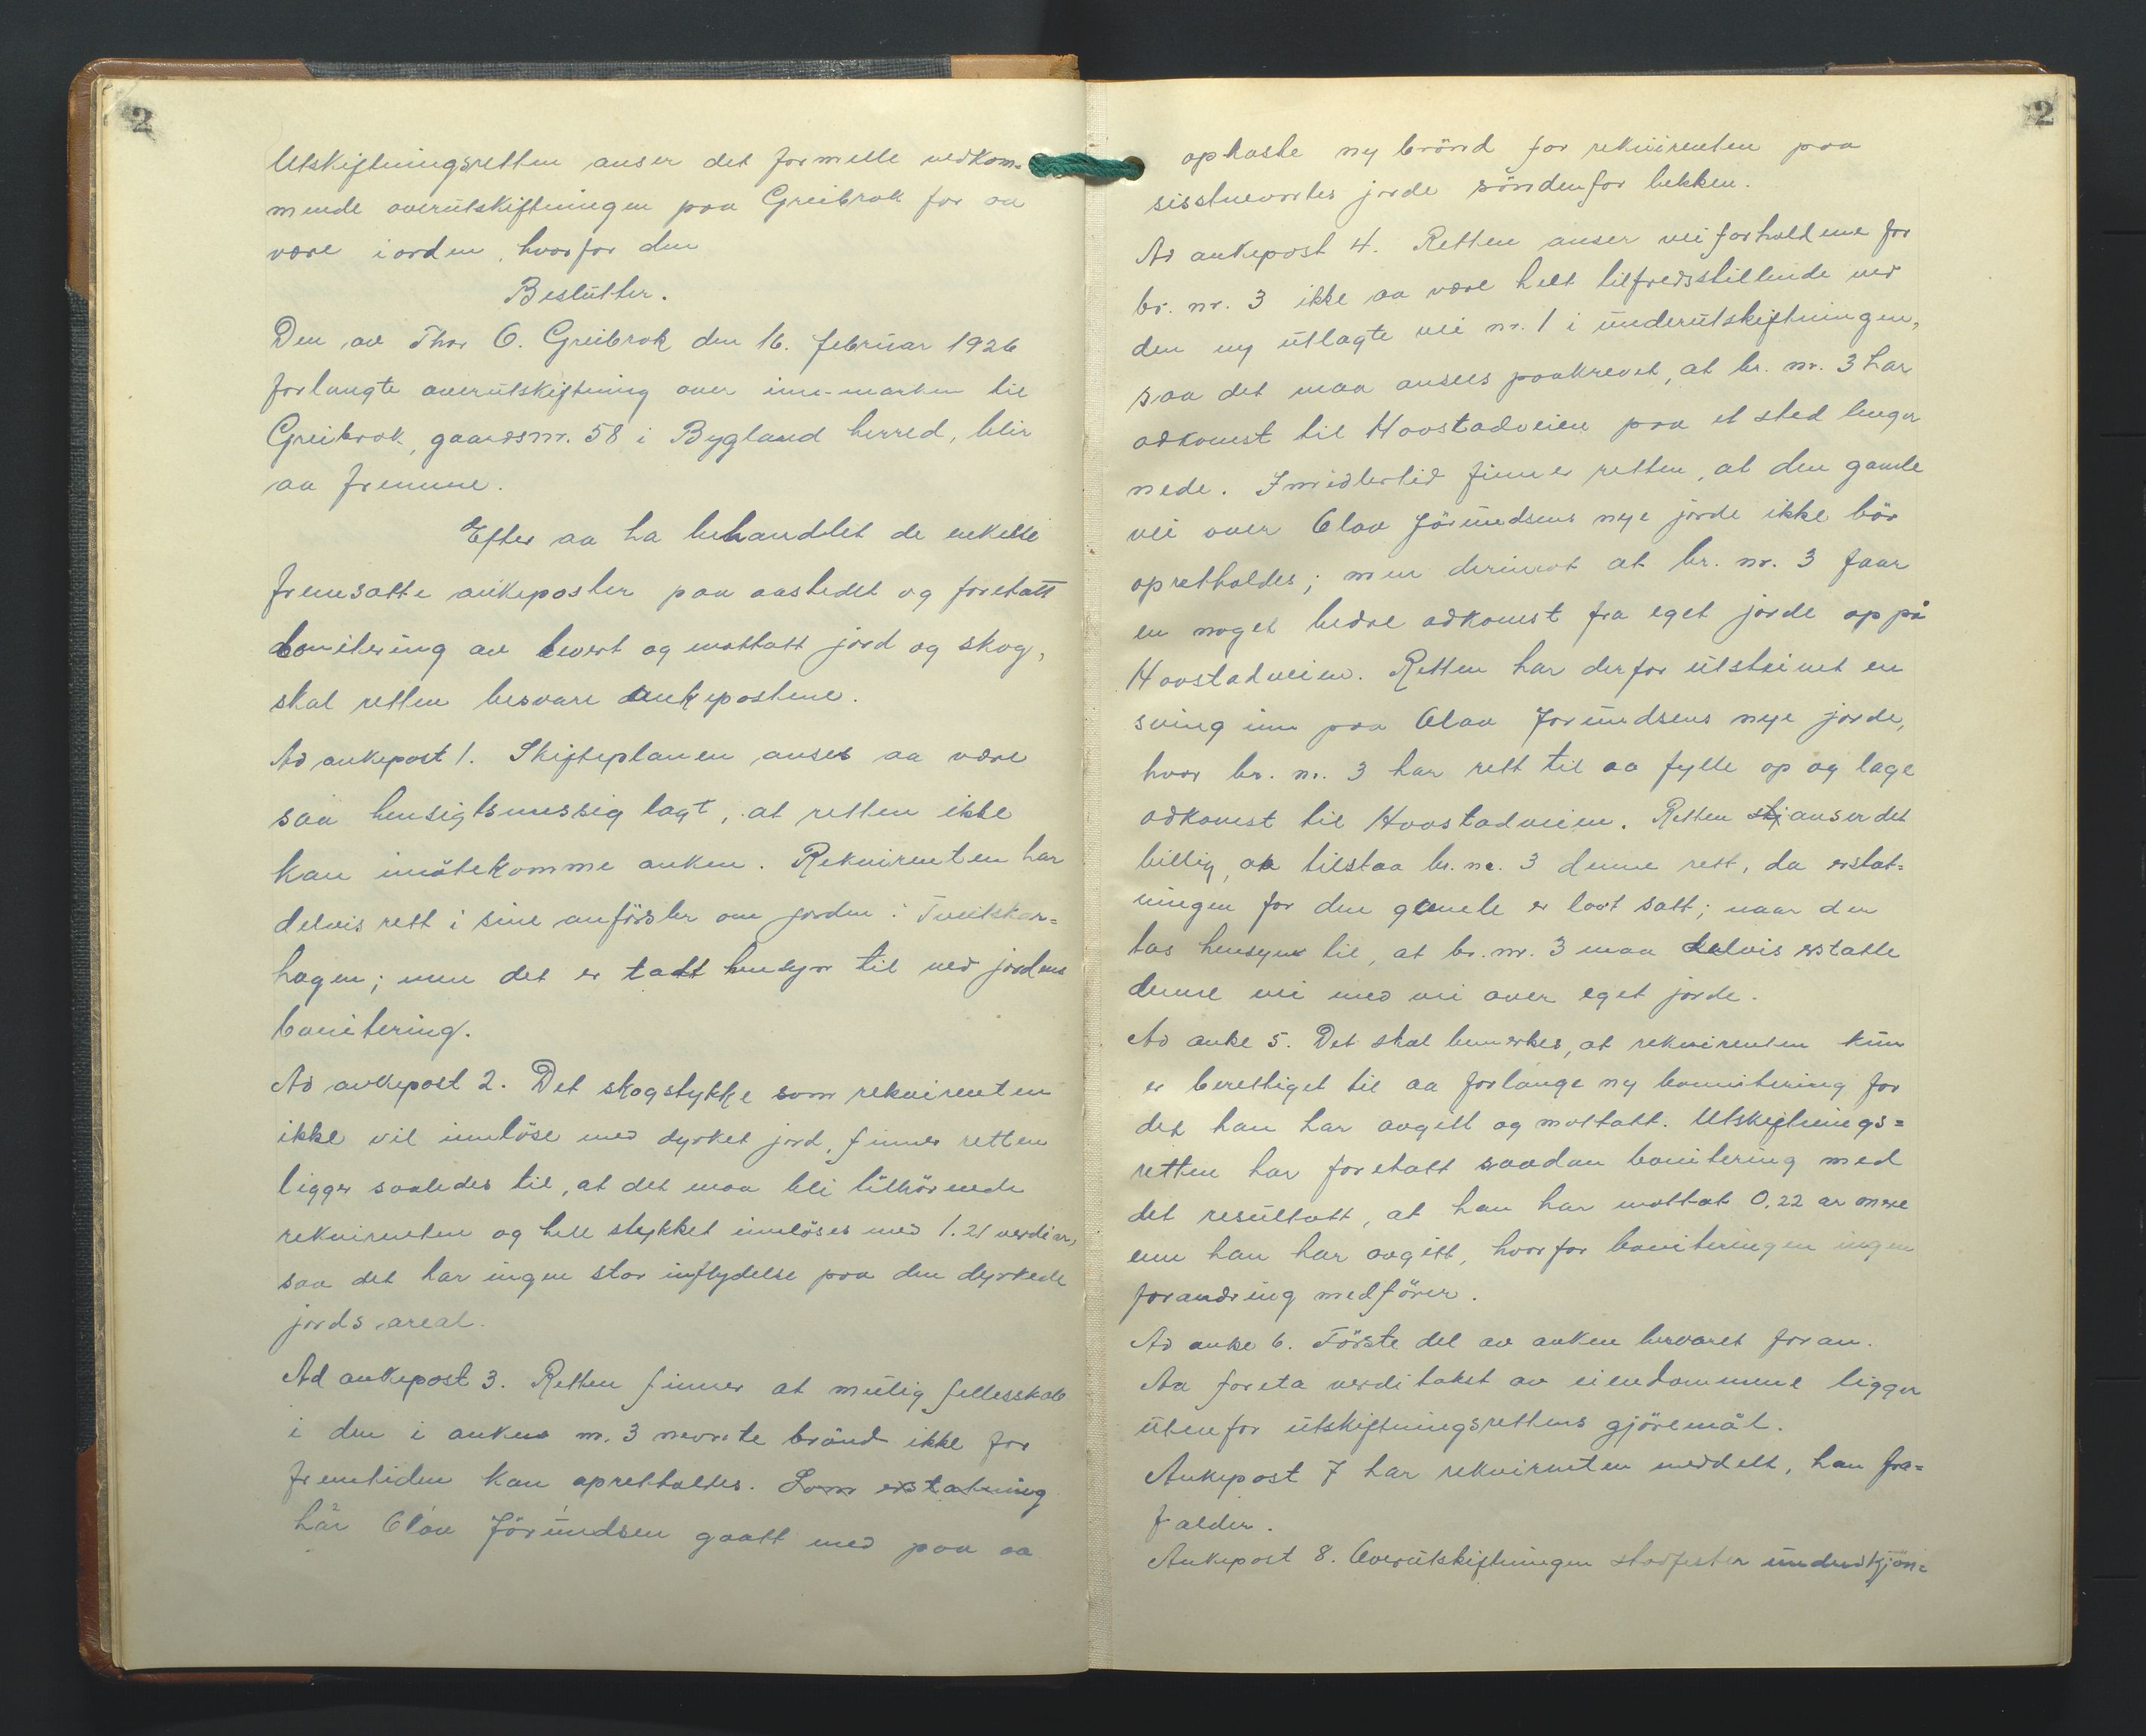 2
Utskiftningsretten anser det formelle vedkom-
mende overutskiftningen paa Greibrok for aa
være iorden, hvorfor den
Beslutter.
Den av Thor O. Greibrok den 16. februar 1926
forlangte overutskiftning over inn-marken til
Greibrok, gaardsnr. 58 i Bygland herred, blir
aa fremme.
Efter aa ha behandlet de enkelte
fremsatte ankeposter paa aastedet og foretatt
bonitering av levert og mottatt jord og skog,
skal retten besvare ankepostene.
Ad ankepost 1. Skifteplanen anses aa være
saa hensigtsmessig lagt, at retten ikke
kan imøtekomme anken. Rekvirenten har
delvis rett i sine anførsler om jorden i Tveitskar=
hagen; men det er tatt hensyn til ved jordens
bonitering.
Ad ankepost 2. Det skogstykke som rekvirenten
ikke vil innløse med dyrket jord, finner retten
ligger saaledes til, at det maa bli tilhørende
rekvirenten og hele stykket innløses med 1.21 verdiar,
saa det har ingen stor inflydelse paa den dyrkede
jords areal.
Ad ankepost 3. Retten finner at mulig fellesskab
i den i anken nr. 3 nevnte brønd ikke for
fremtiden kan opretholdes. Som erstatning
har Olav Jörundsen gaatt med paa aa
2
opkaste ny brönd for rekvirenten paa
sisstnevntes jorde söndenfor bekken.
Ad ankepost 4. Retten anser veiforholdene for
br. nr. 3 ikke aa være helt tilfredsstillende ved
den ny utlagte vei nr. 1 i underutskiftningen,
saa det maa ansees paakrevet, at br. nr. 3 har
adkomst til Hovstadveien paa et sted lenger
nede. Imidlertid finner retten, at den gamle
vei over Olav Jörundsens nye jorde ikke bör
opretholdes; men derimot at br. nr. 3 faar
en noget bedre adkomst fra eget jorde op på
Hovstadveien. Retten har derfor utsteinet en
sving inn paa Olav Jorundsens nye jorde,
hvor br. nr. 3 har rett til aa fylle op og lage
adkomst til Hovstadveien. Retten anser det
billig, aa tilstaa br. nr. 3 denne rett, da erstat=
ningen for den gamle er lavt satt; naar der
tas hensyn til, at br. nr. 3 maa delvis erstatte
denne vei med vei over eget jorde.
Ad anke 5. Det skal bemerkes, at rekvirenten kun
er berettiget til aa forlange ny bonitering for
det han har avgitt og mottatt. Utskiftnings=
retten har foretatt saadan bonitering med
det resultatt, at han har mottat 0,22 ar mere
enn han har avgitt, hvorfor boniteringen ingen
forandring medförer.
Ad anke 6. Förste del av anken besvaret foran.
Aa foreta verditakst av eiendommene ligger
utenfor utskiftningsrettens gjöremål.
Ankepost 7 har rekvirenten meddelt, han fra=
falder.
Ankepost 8. Overutskiftningen stadfester underskjön=